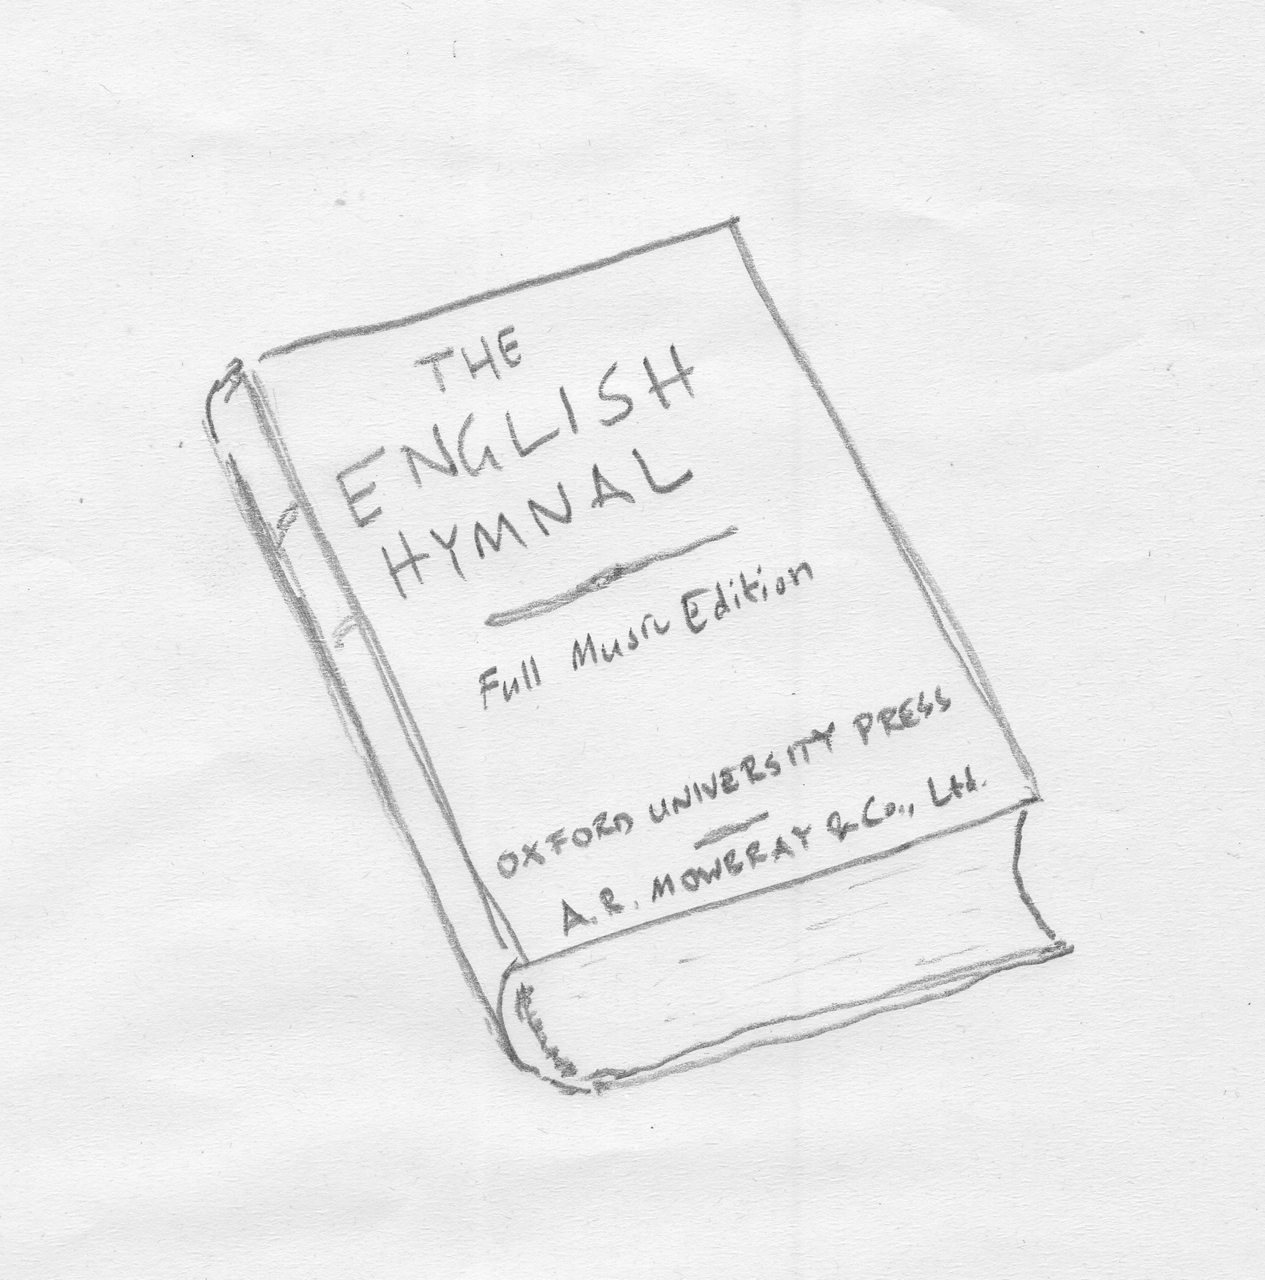 THE
ENGLISH
HYMNAL
Full Music Edition
OXFORD UNIVERSITY PRESS
A.R. MOWBRAY & Co., Ltd.